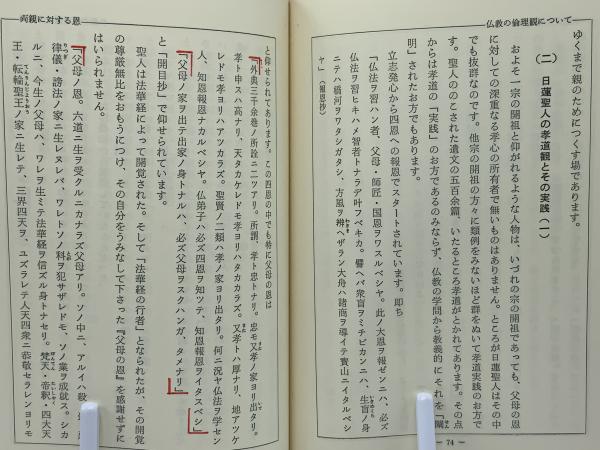 仏教の倫理観について
ゆくまで親のためにつくす場であります。
(二) 日蓮聖人の孝道観とその実践(一)
およそ一宗の開祖と仰がれるような人物は、いづれの宗の開祖であっても、父母の恩
に対しての深重なる孝心の所有者で無いものはありません。ところが日蓮聖人はその中
でも抜群なのです。他宗の開祖の方々に類例をみないほど群をぬいて孝道実践のお方で
す。聖人ののこされた遺文の五百余篇、いたるところ孝道がとかれてあります。その点
からは孝道の「実践」のお方であるのみならず、仏教の学問から教義的にそれを「闡
明」されたお方でもあります。
立志発心から四恩への報恩でスタートされています。即ち
「仏法ヲ習ハン者、父母・師匠・国恩ヲワスルベシヤ。此ノ大恩ヲ報ゼンニハ、必ズ
仏法ヲ習ヒキハメ智者トナラデ叶フベキカ。譬ヘバ衆盲ヲミチビカンニハ、生盲ノ身
ニテハ橋河ヲワタシガタシ、方風ヲ弁ヘザラン大舟ハ諸商ヲ導イテ宝山ニイタルベシ
ヤ」(報恩抄)
— 74 —
両親に対する恩
と仰せられてあります。この四恩の中でも特に父母の恩は
「外典三千余巻ノ所詮ニ二ツアリ。所謂、孝ト忠トナリ。忠モ又孝ノ家ヨリ出タリ。
孝ト申スハ高ナリ、天タカケレドモ孝ヨリハタカカラズ。又孝トハ厚ナリ、地アツケ
レドモ孝ヨリハアツカラズ。聖賢ノ二類ハ孝ノ家ヨリ出タリ。何ニ況ヤ仏法ヲ学セン
人、知恩報恩ナカルベシヤ。仏弟子ハ必ズ四恩ヲ知ツテ、知恩報恩ヲイタスベシ」
「父母ノ家ヲ出テ出家ノ身トナルハ、必ズ父母ヲスクハンガ、タメナリ」
と「開目抄」で仰せられています。
聖人は法華経によって開覚された。そして「法華経の行者」となられたが、その開覚
の尊厳無比をおもうにつけ、その自分をうみなして下さった『父母の恩』を感謝せずに
はいられません。
「父母ノ恩。六道ニ生ヲ受クルニカナラズ父母アリ。ソノ中ニ、アルイハ殺
律儀・謗法ノ家ニ生レヌレバ、ワレトソノ科ヲ犯サザレドモ、ソノ業ヲ成就ス。シカ
ルニ、今生ノ父母ハ、ワレヲ生ミテ法華経ヲ信ズル身トナセリ。梵天・帝釈、四大天
王・転輪聖王ノ家ニ生レテ、三界四天ヲ、ユヅラレテ人天四衆ニ恭敬セラレンヨリモ